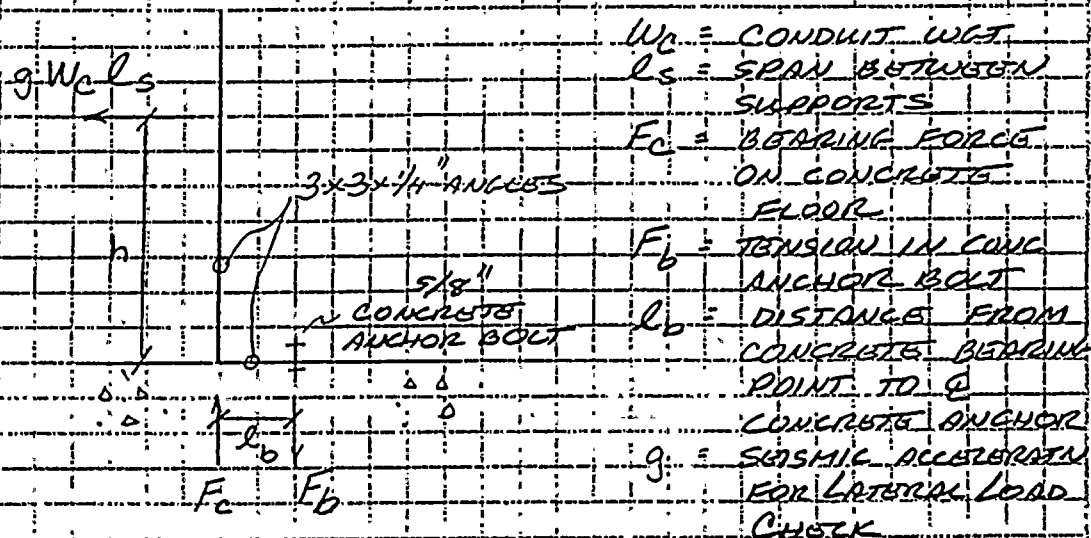 g Wc ls
h
3x3x1/4" ANGLES
5/8"
CONCRETE
ANCHOR BOLT
lb
Fc Fb
Wc = CONDUIT WGT
ls = SPAN BETWEEN
SUPPORTS
Fc = BEARING FORCE
ON CONCRETE
FLOOR
Fb = TENSION IN CONC
ANCHOR BOLT
lb = DISTANCE FROM
CONCRETE BEARING
POINT TO ℄
CONCRETE ANCHOR
g = SEISMIC ACCELERATN
FOR LATERAL LOAD
CHECK